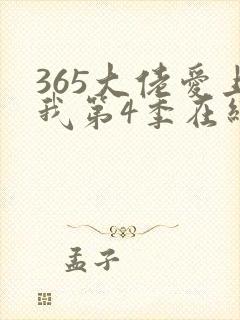 365大佬爱上
我第4季在线
孟子